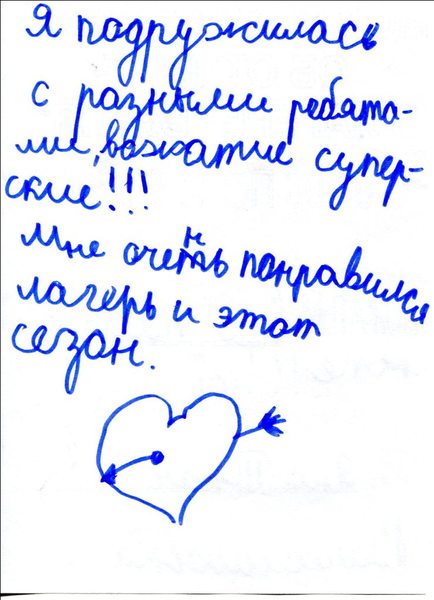 Я подружилась
с разными ребята-
ми, вожатие супер-
ские!!!
Мне очень понравился
лагерь и этот
сезон.